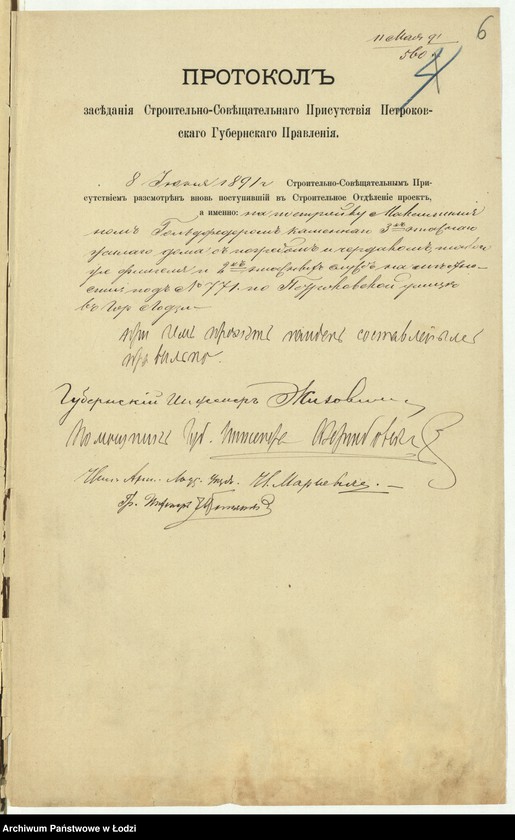 6
11 Мая 91
560
ПРОТОКОЛЪ
засѣданія Строительно-Совѣщательнаго Присутствія Петроков-
скаго Губернскаго Правленія.
8 Іюня 1891 г Строительно-Совѣщательнымъ При-
сутствіемъ разсмотрѣнъ вновь поступившій въ Строительное Отдѣленіе проектъ,
а именно: на постройку Максимилiа-
номъ Гольдфедеромъ каменнаго 3хъ этажнаго
жилаго дома съ погребомъ и чердакомъ,
флигеля и 2хъ этажныхъ на
подъ № 771 по Петроковской улицѣ
въ гор. Лодзи
при чемъ проектъ найденъ составленнымъ
правильно.
Губернскій Инженеръ
Помощникъ Губ. Инженера
Гр. Инженеръ
Archiwum Państwowe w Łodzi